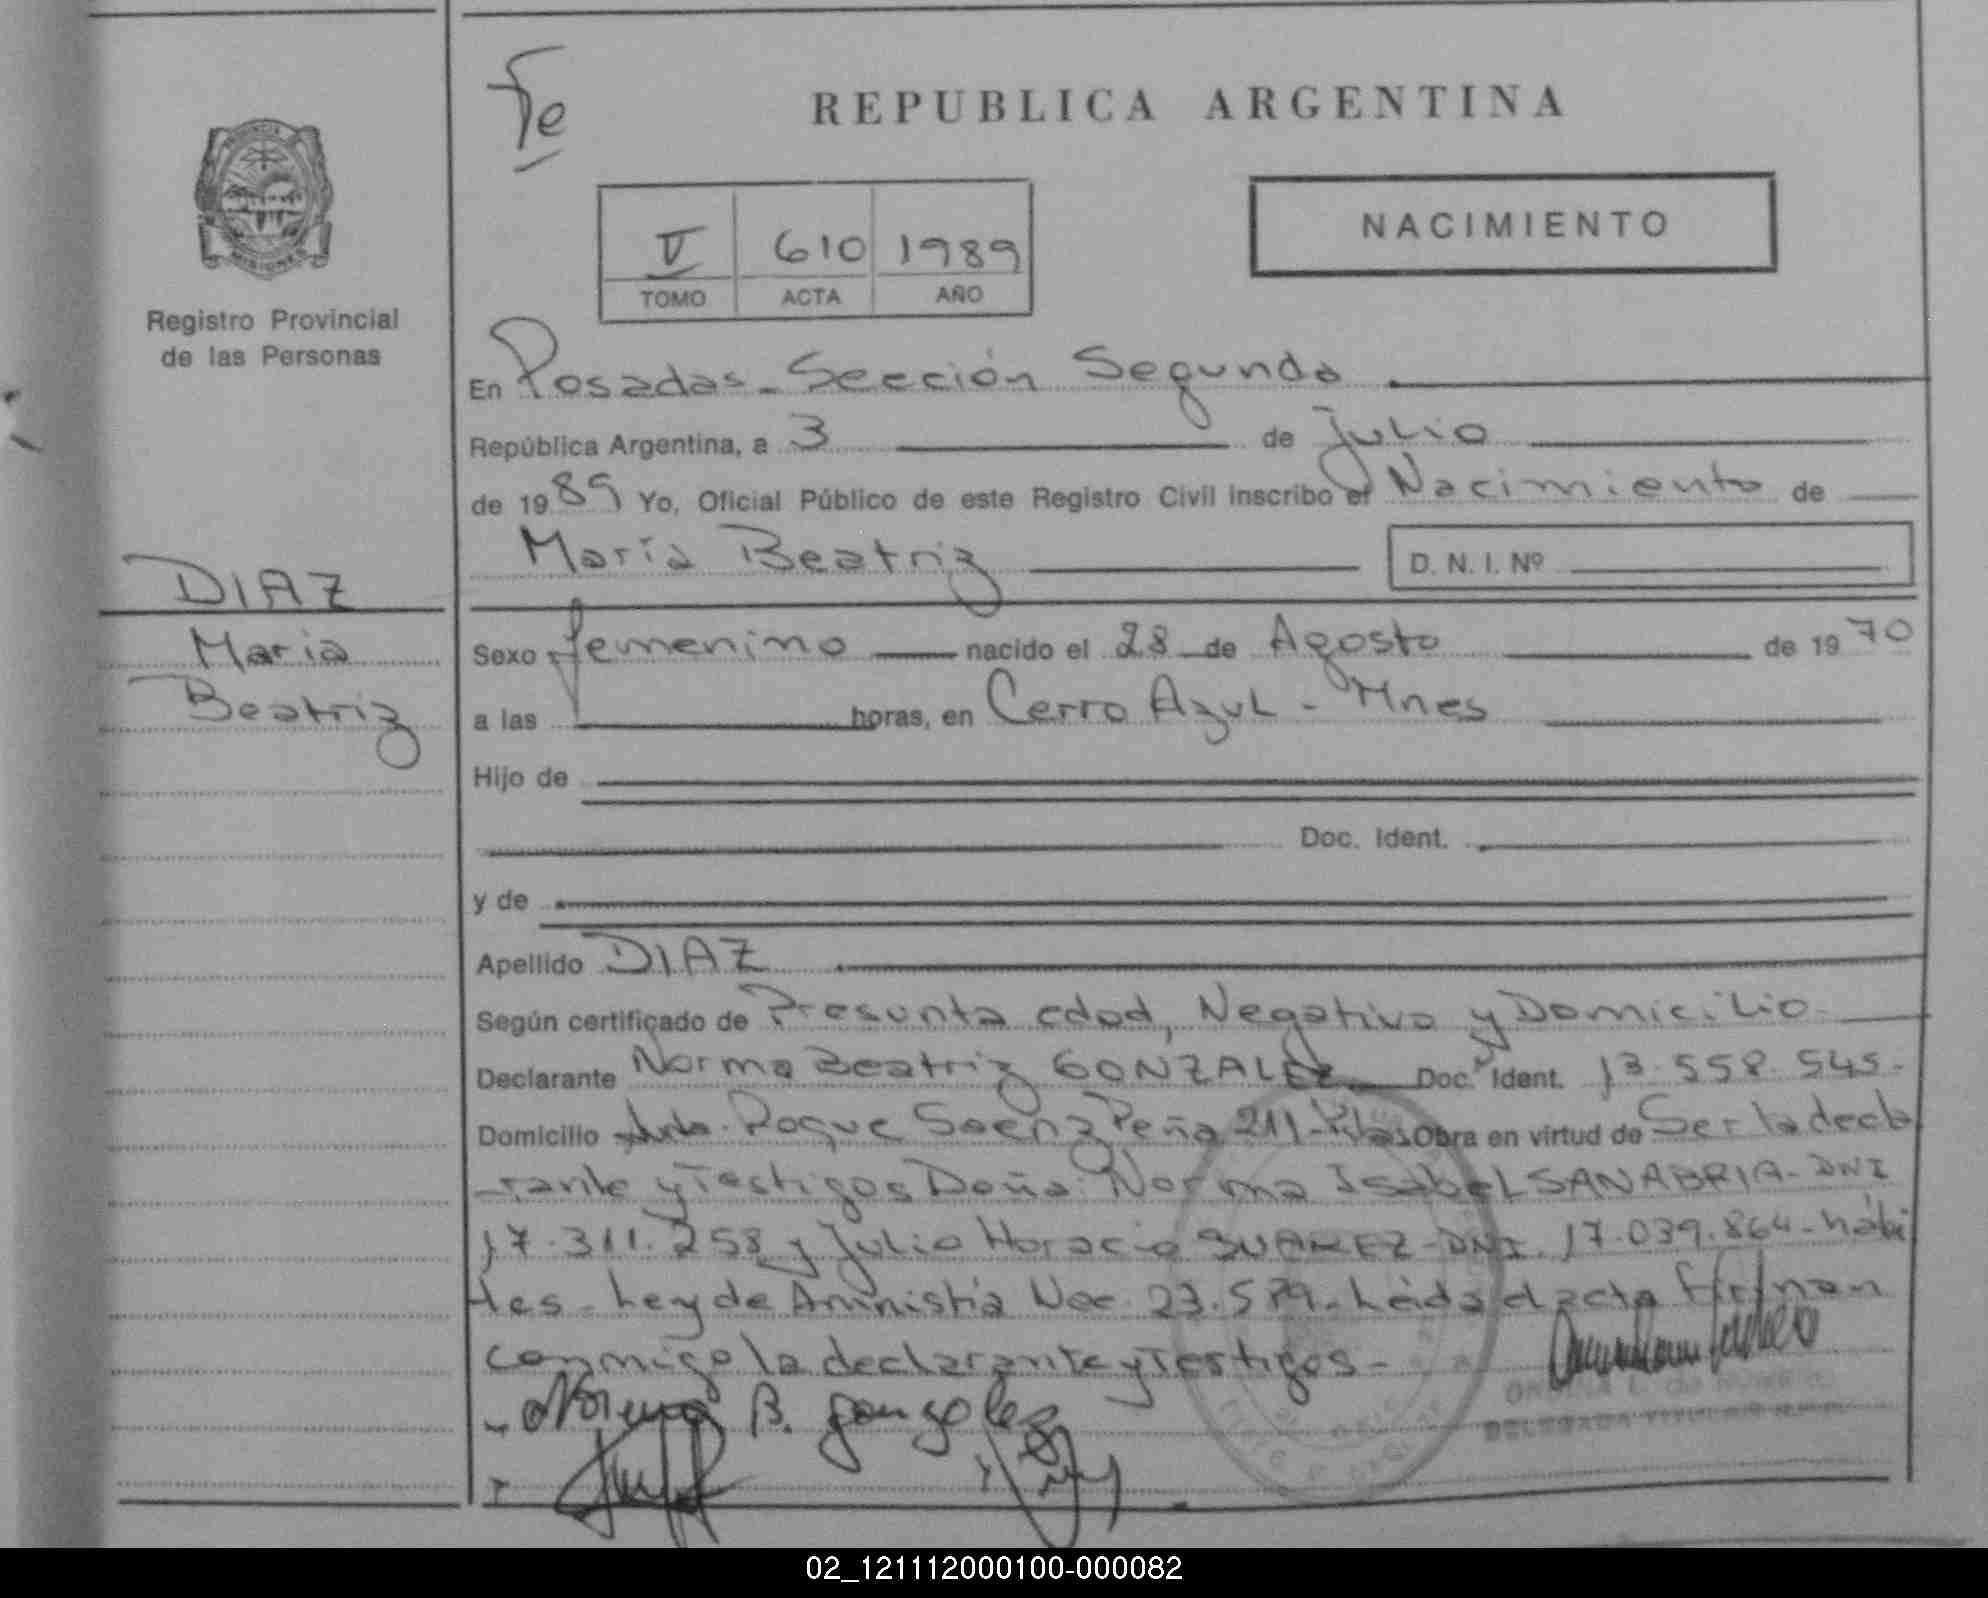 Fe
REPUBLICA ARGENTINA
MISIONES
NACIMIENTO
V 610 1989
TOMO ACTA AÑO
Registro Provincial
de las Personas
En Posadas - Sección Segunda
República Argentina, a 3 de Julio
de 1989 Yo, Oficial Público de este Registro Civil inscribo el Nacimiento de
María Beatriz D. N. I. Nº
DIAZ
María
Beatriz
Sexo femenino nacido el 28 de Agosto de 1970
a las horas, en Cerro Azul - Mnes
Hijo de
Doc. Ident.
y de
Apellido DIAZ
Según certificado de Presunta edad, Negativo y Domicilio -
Declarante Norma Beatriz GONZALEZ Doc. Ident. 13.558.545-
Domicilio Roque Saenz Peña 211 - Pdas Obra en virtud de Ser la decla
-rante y Testigos Doña: Norma Isabel SANABRIA - DNI
17.311.258 y Julio Horacio SUAREZ - DNI. 17.039.864 - hábi
les - Ley de Amnistía Nac. 23.579 - Leída el acta firman
conmigo la declarante y Testigos -
- Norma B. Gonzalez
DELEGADA TITULAR
02_121112000100-000082